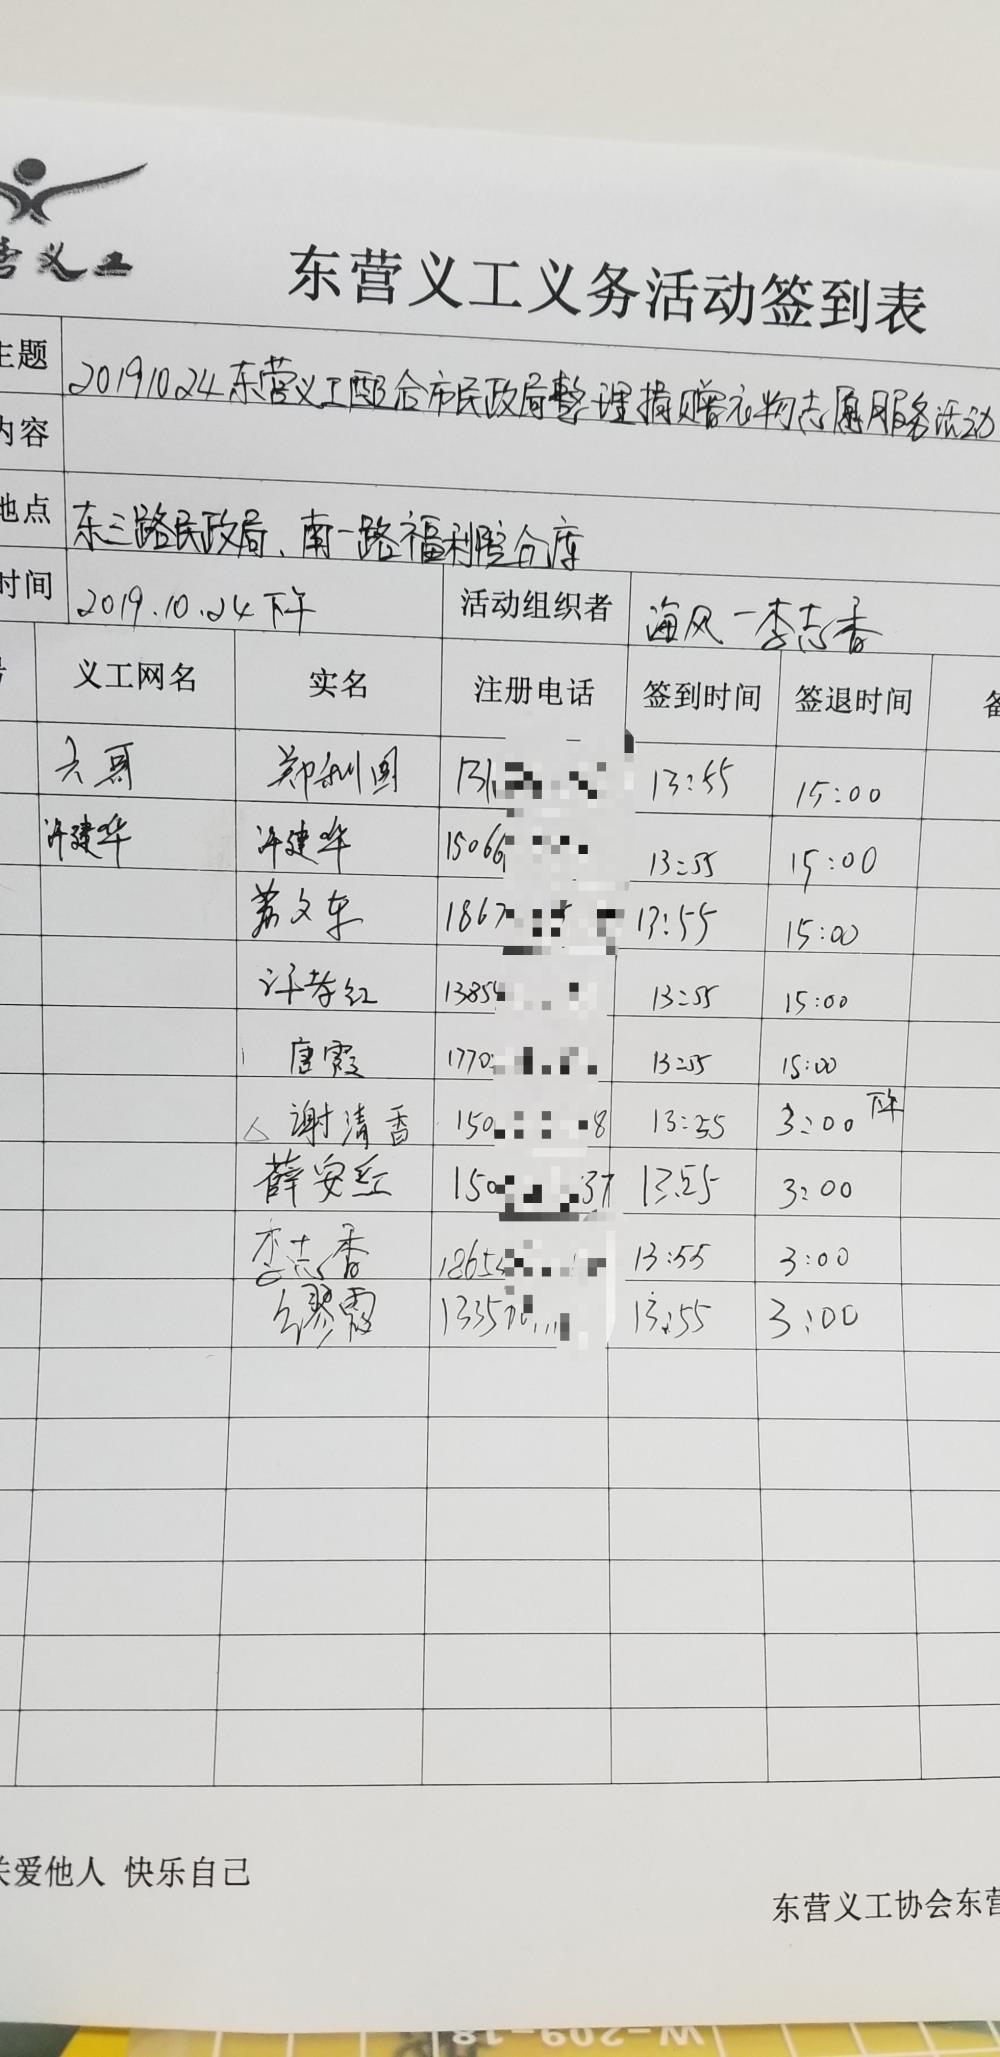 营义工
东营义工义务活动签到表
主题 20191024东营义工配合市民政局整理捐赠衣物志愿服务活动
内容
地点 东三路民政局、南一路福利院仓库
时间 2019.10.24下午 活动组织者 海风一李志香
号 义工网名 实名 注册电话 签到时间 签退时间 备
六哥 郑利国 131 13:55 15:00
许建华 许建华 15066 13:55 15:00
文东 1867 13:55 15:00
许孝红 13854 13:55 15:00
唐霞 1770 13:55 15:00
谢清香 150 8 13:55 3:00 下午
薛安红 150 37 13:55 3:00
李志香 1865 13:55 3:00
缪霞 1335 13:55 3:00
关爱他人 快乐自己
东营义工协会东营
W-209-18